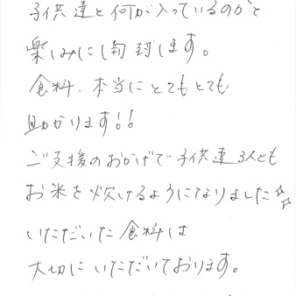 子供達と何が入っているのかと
楽しみにし開封します。
食料、本当にとてもとても
助かります!!
ご支援のおかげで子供達3人とも
お米を炊けるようになりました✨
いただいた食料は
大切にいただいております。